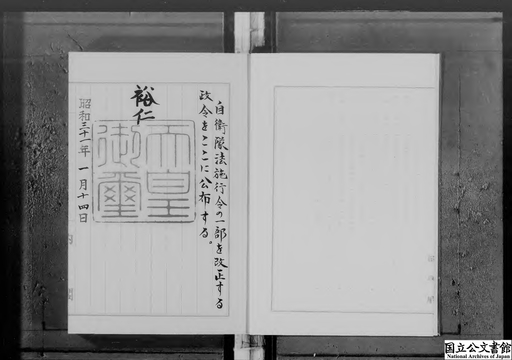 自衛隊法施行令の一部を改正する
政令をここに公布する。
裕仁
天皇
御璽
昭和三十一年一月十四日
国立公文書館
National Archives of Japan